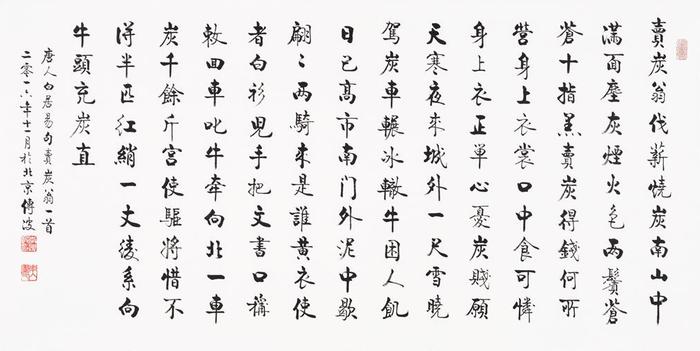 賣炭翁伐薪燒炭南山中
滿面塵灰煙火色兩鬢蒼
蒼十指黑賣炭得錢何所
營身上衣裳口中食可憐
身上衣正單心憂炭賤願
天寒夜來城外一尺雪曉
駕炭車輾冰轍牛困人飢
日已高市南门外泥中歇
翩〻兩騎來是誰黃衣使
者白衫兒手把文書口稱
敕回車叱牛牽向北一車
炭千餘斤宮使驅將惜不
得半匹红綃一丈綾系向
牛頭充炭直
唐人白居易句賣炭翁一首
二零一六年十一月於北京傳波